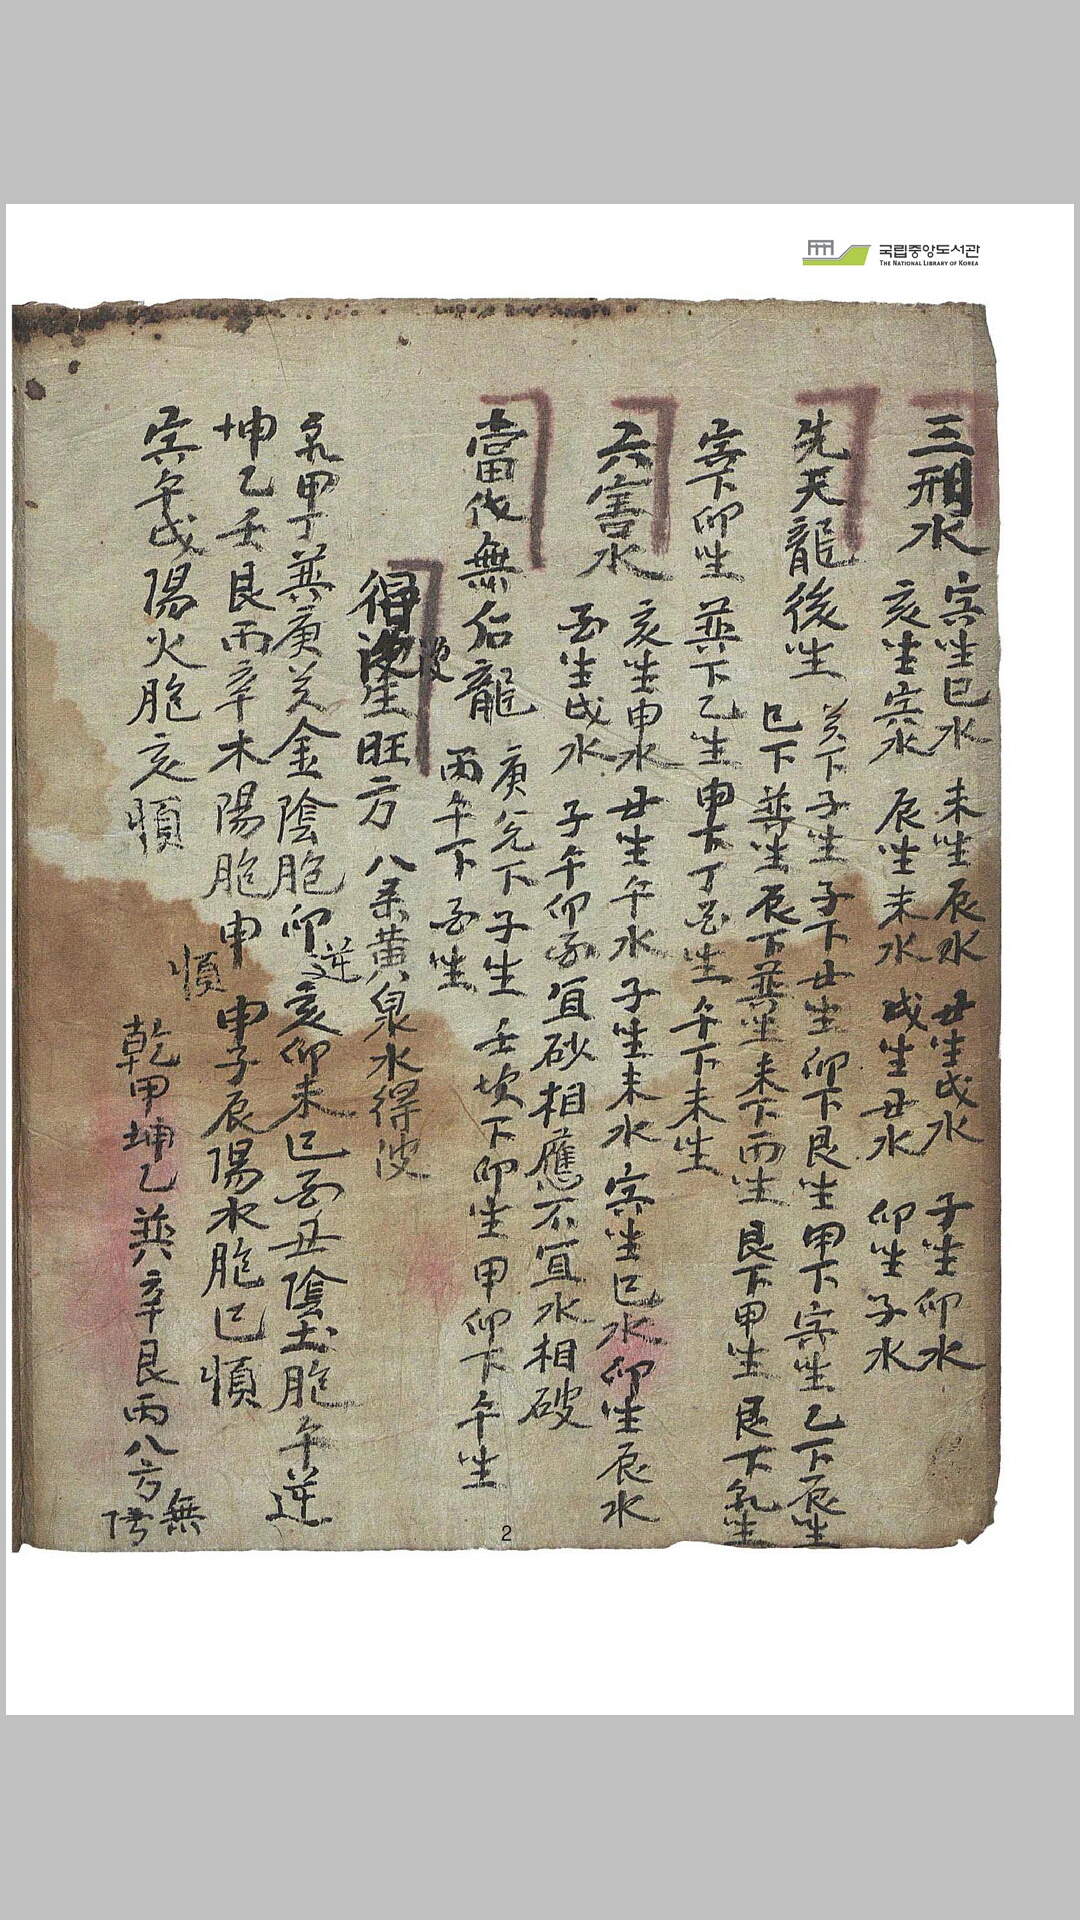 국립중앙도서관
THE NATIONAL LIBRARY OF KOREA
三刑水
寅生巳水 未生辰水 丑生戌水 子生卯水
亥生寅水 辰生未水 戌生丑水 卯生子水
先天龍後生
癸下子生 子下丑生 卯下艮生 甲下寅生 乙下辰生
巳下巽生 辰下巽生 未下丙生 艮下甲生 艮下乾生
寅下卯生 巽下乙生 申下丁酉生 午下未生
六害水
亥生申水 丑生午水 子生未水 寅生巳水 卯生辰水
酉生戌水
子午卯酉宜砂相應不宜水相破
當代無后龍
庚兌下子生 壬坎下卯生 甲卯下午生
丙午下酉生
得波生旺方 八条黃泉水得波
乾甲丁巽庚癸金陰胞卯逆 亥卯未巳酉丑陰土胞午逆
坤乙壬艮丙辛木陽胞申順 申子辰陽水胞巳順
寅午戌陽火胞亥順
乾甲坤乙巽辛艮丙八方無
2